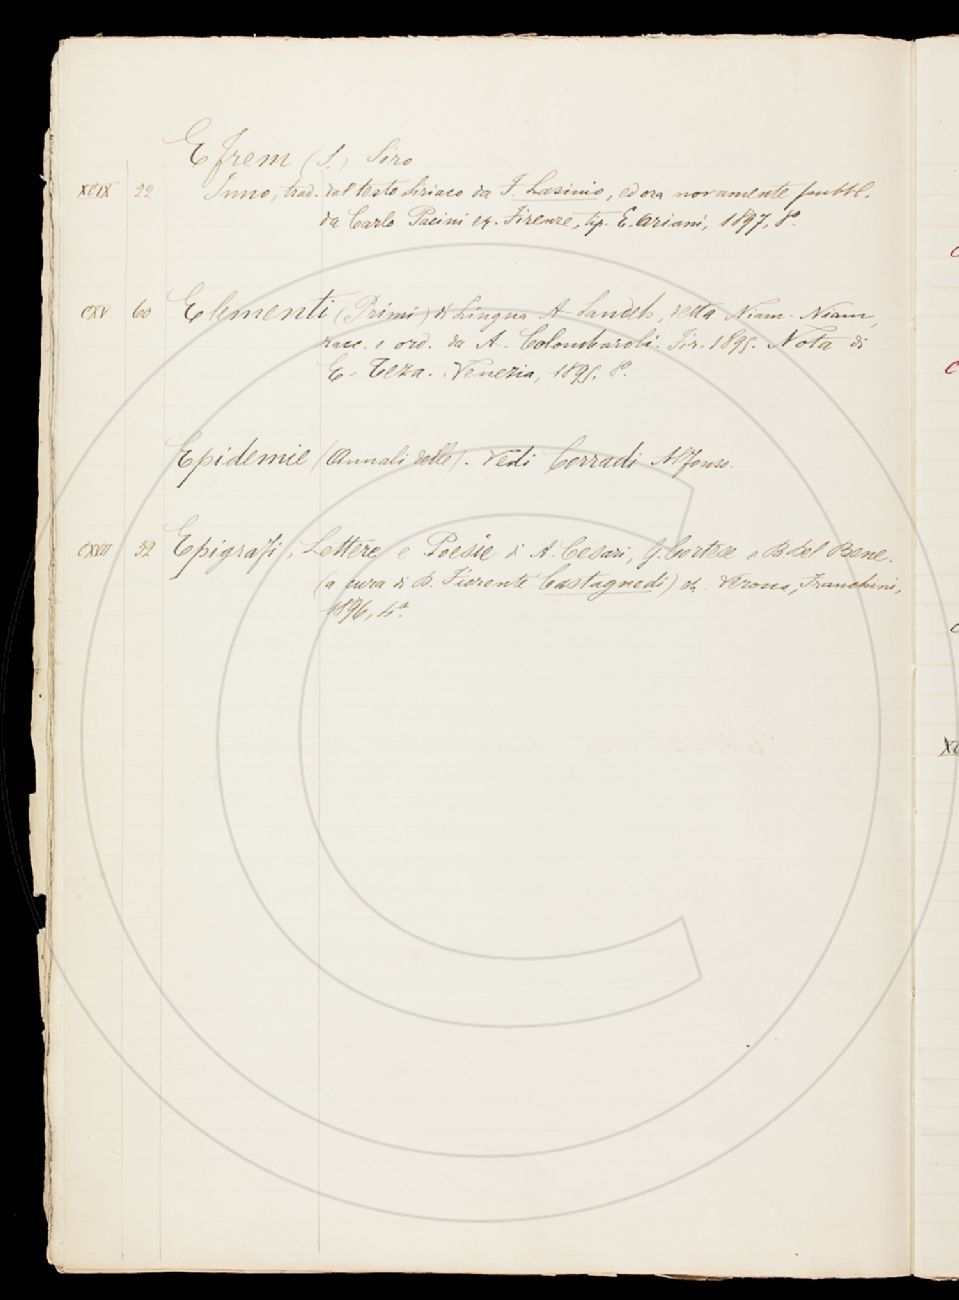 Efrem (S.) Siro
XCIX 22 Inno, trad. dal testo siriaco da F. Lasinio, ed ora novamente pubbl.
da Carlo Pacini ec. Firenze, tip. E. Ariani, 1897, 8º.
CXV 60 Elementi (Primi) di Lingua A-Sandeh, detta Niam-Niam,
racc. e ord. da A. Colombaroli. Fir. 1895. Nota di
E. Teza. Venezia, 1895. 8º.
Epidemie (Annali delle). Vedi Corradi Alfonso.
CXVII 52 Epigrafi, Lettere e Poesie di A. Cesari, G. Cortese e B. del Bene.
(a cura di B. Fiorente Castagnedi) ec. Verona, Franchini,
1896, 4º.